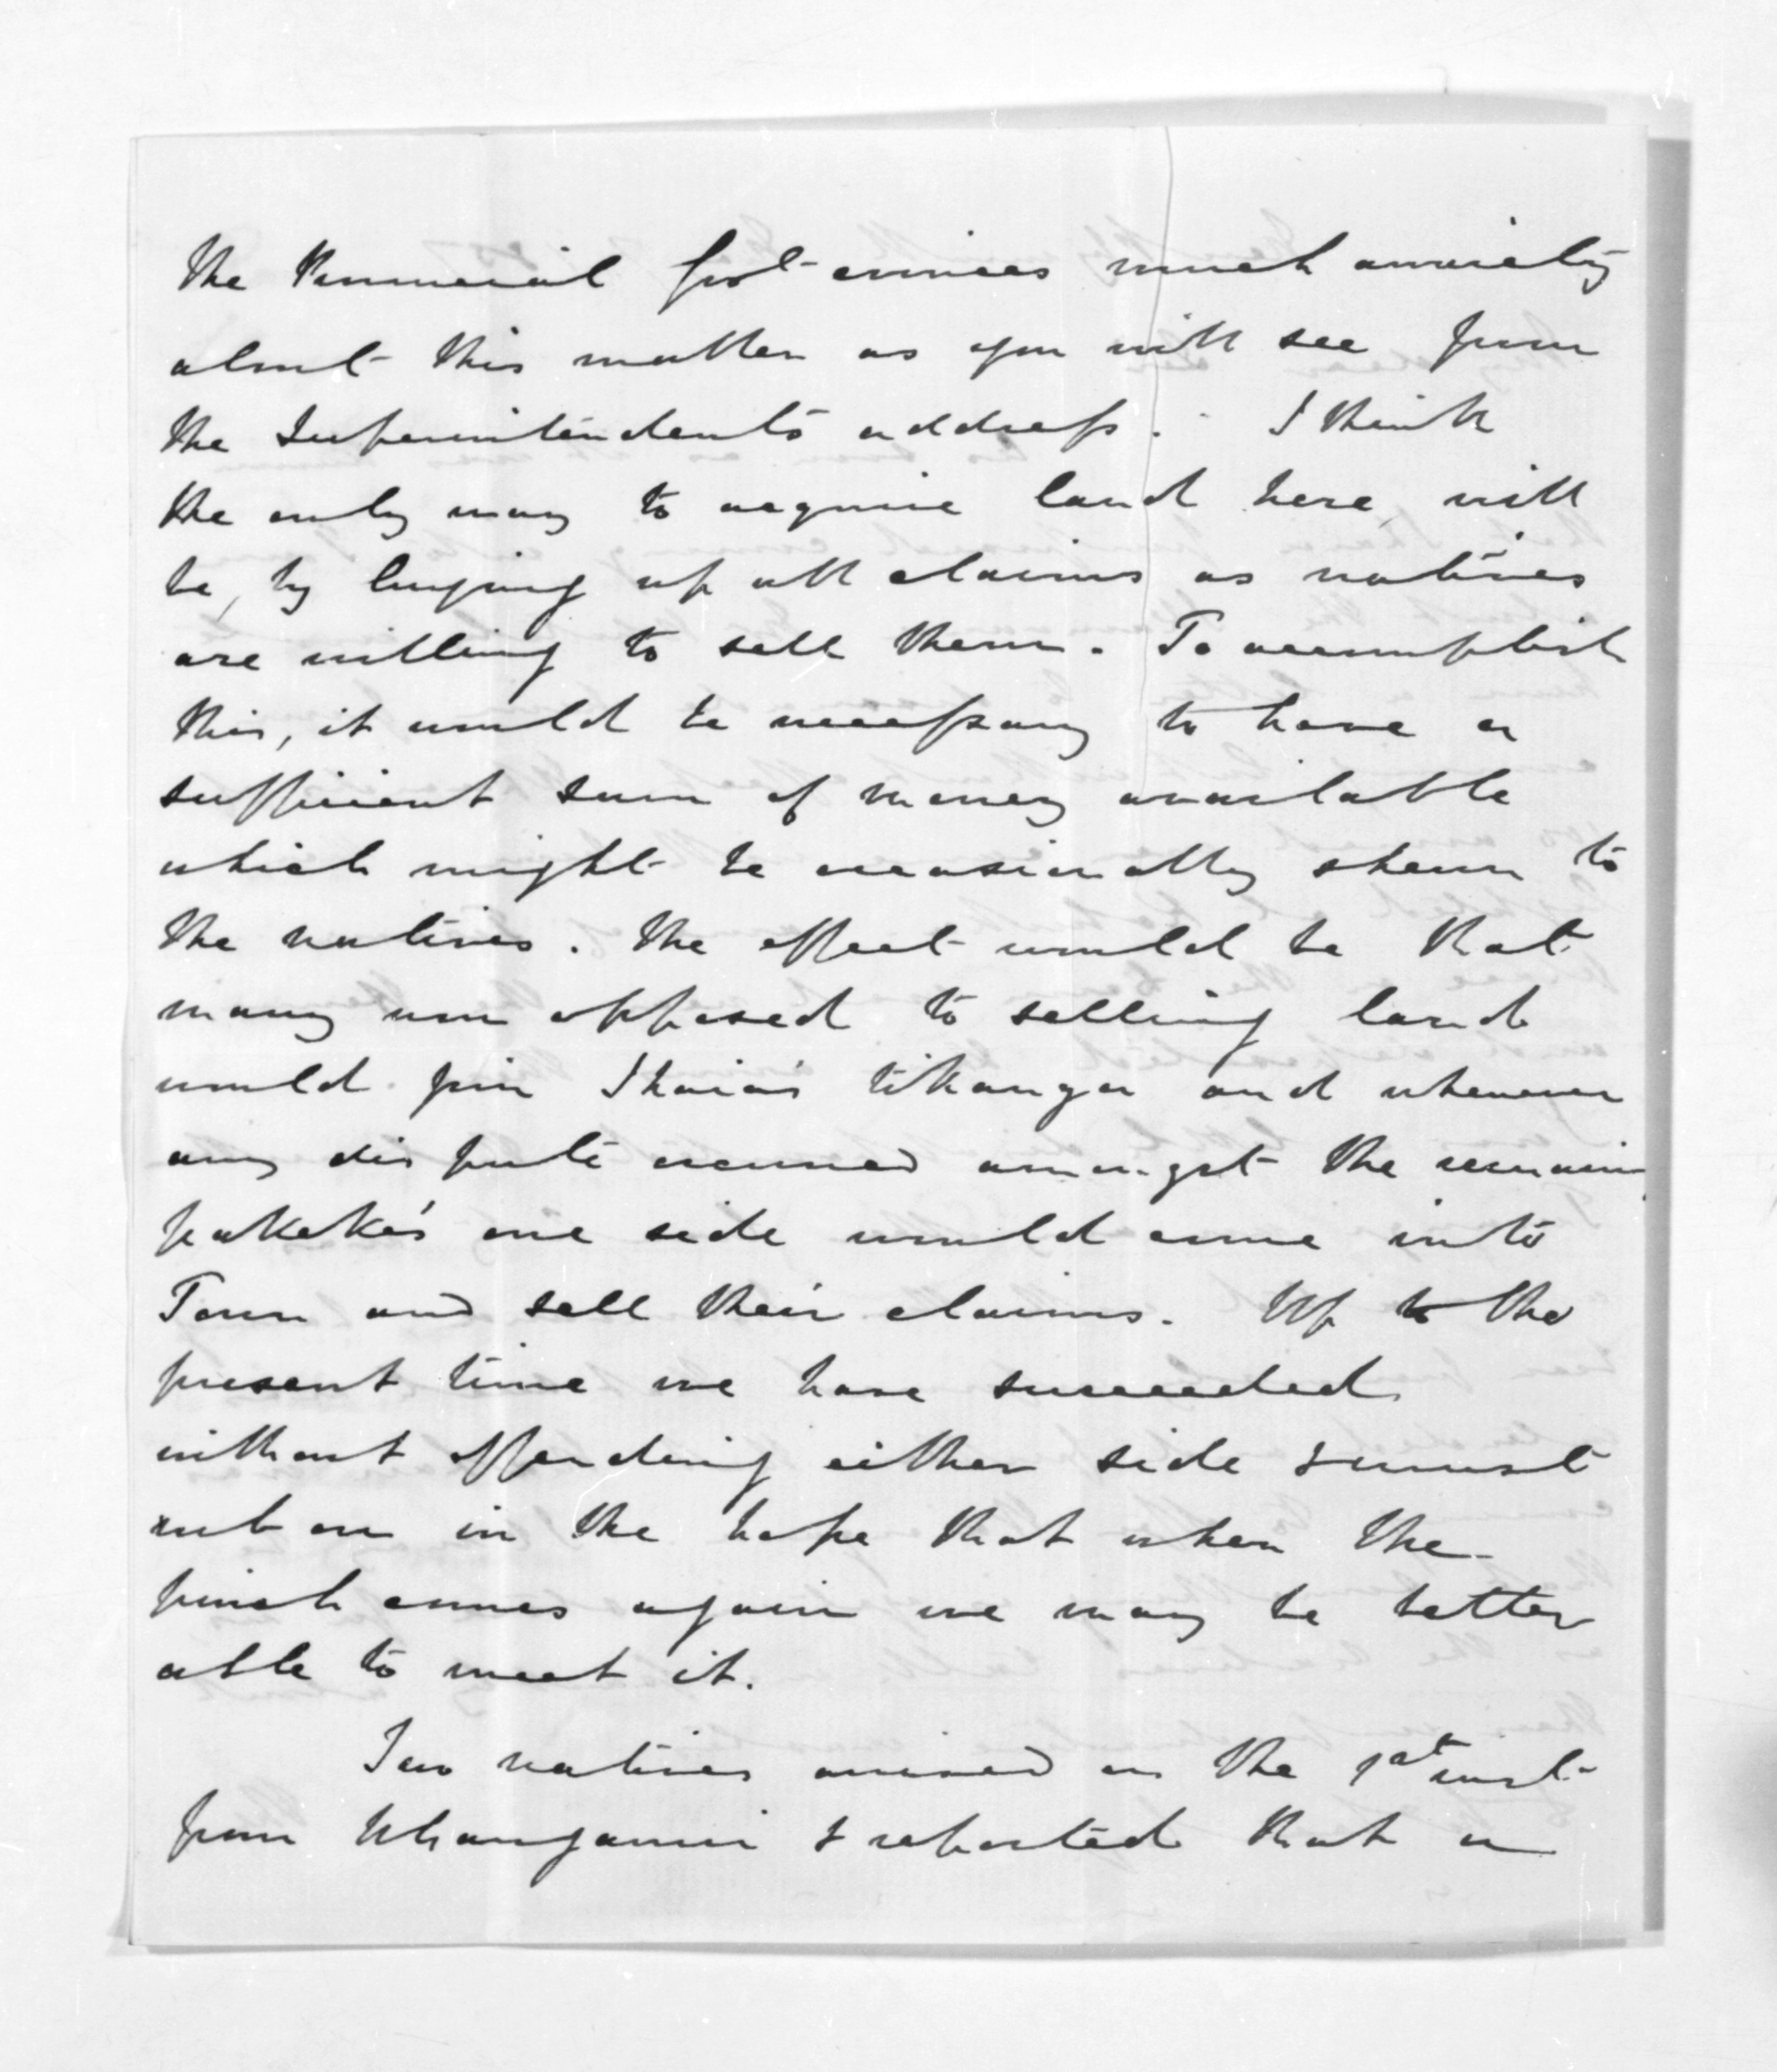 The Provincial Govt evinces much anxiety
about this matter as you will see from
the Superintendents address. I think
the only way to acquire land here, will
be, by buying up all claims as natives
are willing to sell them. To accomplish
this, it would be necessary to have a
sufficient sum of money available
which might be occasionally shewn to
the natives. The effect would be that
many now opposed to selling land
would join Ihaia's tikanga and whenever
any dispute occurred amongst the remaining
pakeke's one side would come into
Town and sell their claims. Up to the
present time we have succeeded
without offending either side & must
rub on in the hope that when the
pinch comes again we may be better
able to meet it.
Two natives arrived on the 1st inst
from Whanganui & reported that a